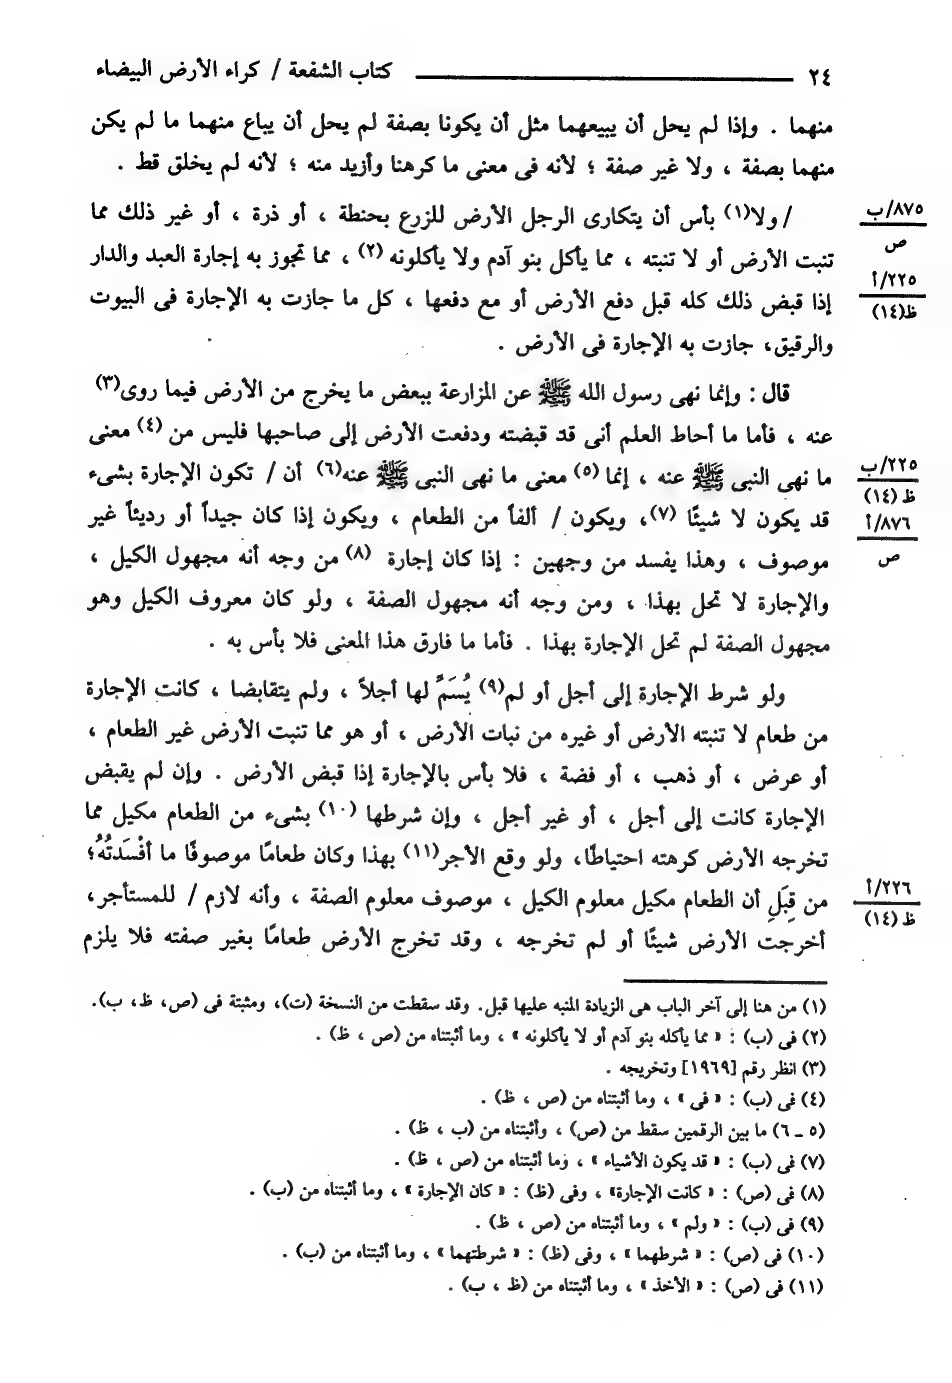 ٢٤ ــــــــــــــــ كتاب الشفعة / كراء الأرض البيضاء
منهما . وإذا لم يحل أن يبيعهما مثل أن يكونا بصفة لم يحل أن يباع منهما ما لم يكن
منهما بصفة ، ولا غير صفة ؛ لأنه فى معنى ما كرهنا وأزيد منه ؛ لأنه لم يخلق قط .
/ ولا(١) بأس أن يتكارى الرجل الأرض للزرع بحنطة ، أو ذرة ، أو غير ذلك مما
٨٧٥/ب
ص
تنبت الأرض أو لا تنبته ، مما يأكل بنو آدم ولا يأكلونه (٢) ، مما تجوز به إجارة العبد والدار
٢٢٥/أ
ظ(١٤)
إذا قبض ذلك كله قبل دفع الأرض أو مع دفعها ، كل ما جازت به الإجارة فى البيوت
والرقيق، جازت به الإجارة فى الأرض .
قال : وإنما نهى رسول الله ﷺ عن المزارعة ببعض ما يخرج من الأرض فيما روى(٣)
عنه ، فأما ما أحاط العلم أنى قد قبضته ودفعت الأرض إلى صاحبها فليس من (٤) معنى
ما نهى النبى ﷺ عنه ، إنما (٥) معنى ما نهى النبى ﷺ عنه(٦) أن / تكون الإجارة بشىء
٢٢٥/ب
ظ (١٤)
قد يكون لا شيئًا (٧)، ويكون / ألفاً من الطعام ، ويكون إذا كان جيداً أو رديئاً غير
٨٧٦/أ
ص
موصوف ، وهذا يفسد من وجهين : إذا كان إجارة (٨) من وجه أنه مجهول الكيل ،
والإجارة لا تحل بهذا ، ومن وجه أنه مجهول الصفة ، ولو كان معروف الكيل وهو
مجهول الصفة لم تحل الإجارة بهذا . فأما ما فارق هذا المعنى فلا بأس به .
ولو شرط الإجارة إلى أجل أو لم(٩) يُسَمِّ لها أجلاً ، ولم يتقابضا ، كانت الإجارة
من طعام لا تنبته الأرض أو غيره من نبات الأرض ، أو هو مما تنبت الأرض غير الطعام ،
أو عرض ، أو ذهب ، أو فضة ، فلا بأس بالإجارة إذا قبض الأرض . وإن لم يقبض
الإجارة كانت إلى أجل ، أو غير أجل ، وإن شرطها (١٠) بشىء من الطعام مكيل مما
تخرجه الأرض كرهته احتياطًا، ولو وقع الأجر(١١) بهذا وكان طعامًا موصوفًا ما أفْسَدتُهُ؛
من قِبَلِ أن الطعام مكيل معلوم الكيل ، موصوف معلوم الصفة ، وأنه لازم / للمستأجر،
٢٢٦/أ
ظ (١٤)
أخرجت الأرض شيئًا أو لم تخرجه ، وقد تخرج الأرض طعامًا بغير صفته فلا يلزم
(١) من هنا إلى آخر الباب هى الزيادة المنبه عليها قبل. وقد سقطت من النسخة (ت)، ومثبتة فى (ص، ظ، ب).
(٢) فى (ب) : « مما يأكله بنو آدم أو لا يأكلونه » ، وما أثبتناه من (ص ، ظ) .
(٣) انظر رقم [١٩٦٩] وتخريجه .
(٤) فى (ب) : « فى » ، وما أثبتناه من (ص ، ظ) .
(٥ ـ ٦) ما بين الرقمين سقط من (ص) ، وأثبتناه من (ب ، ظ) .
(٧) فى (ب) : « قد يكون الأشياء » ، وما أثبتناه من (ص ، ظ) .
(٨) فى (ص) : « كانت الإجارة» ، وفى (ظ) : « كان الإجارة » ، وما أثبتناه من (ب) .
(٩) فى (ب) : « ولم » ، وما أثبتناه من (ص ، ظ) .
(١٠) فى (ص) : « شرطهما » ، وفى (ظ) : « شرطتهما » ، وما أثبتناه من (ب) .
(١١) فى (ص) : « الأخذ » ، وما أثبتناه من (ظ ، ب) .